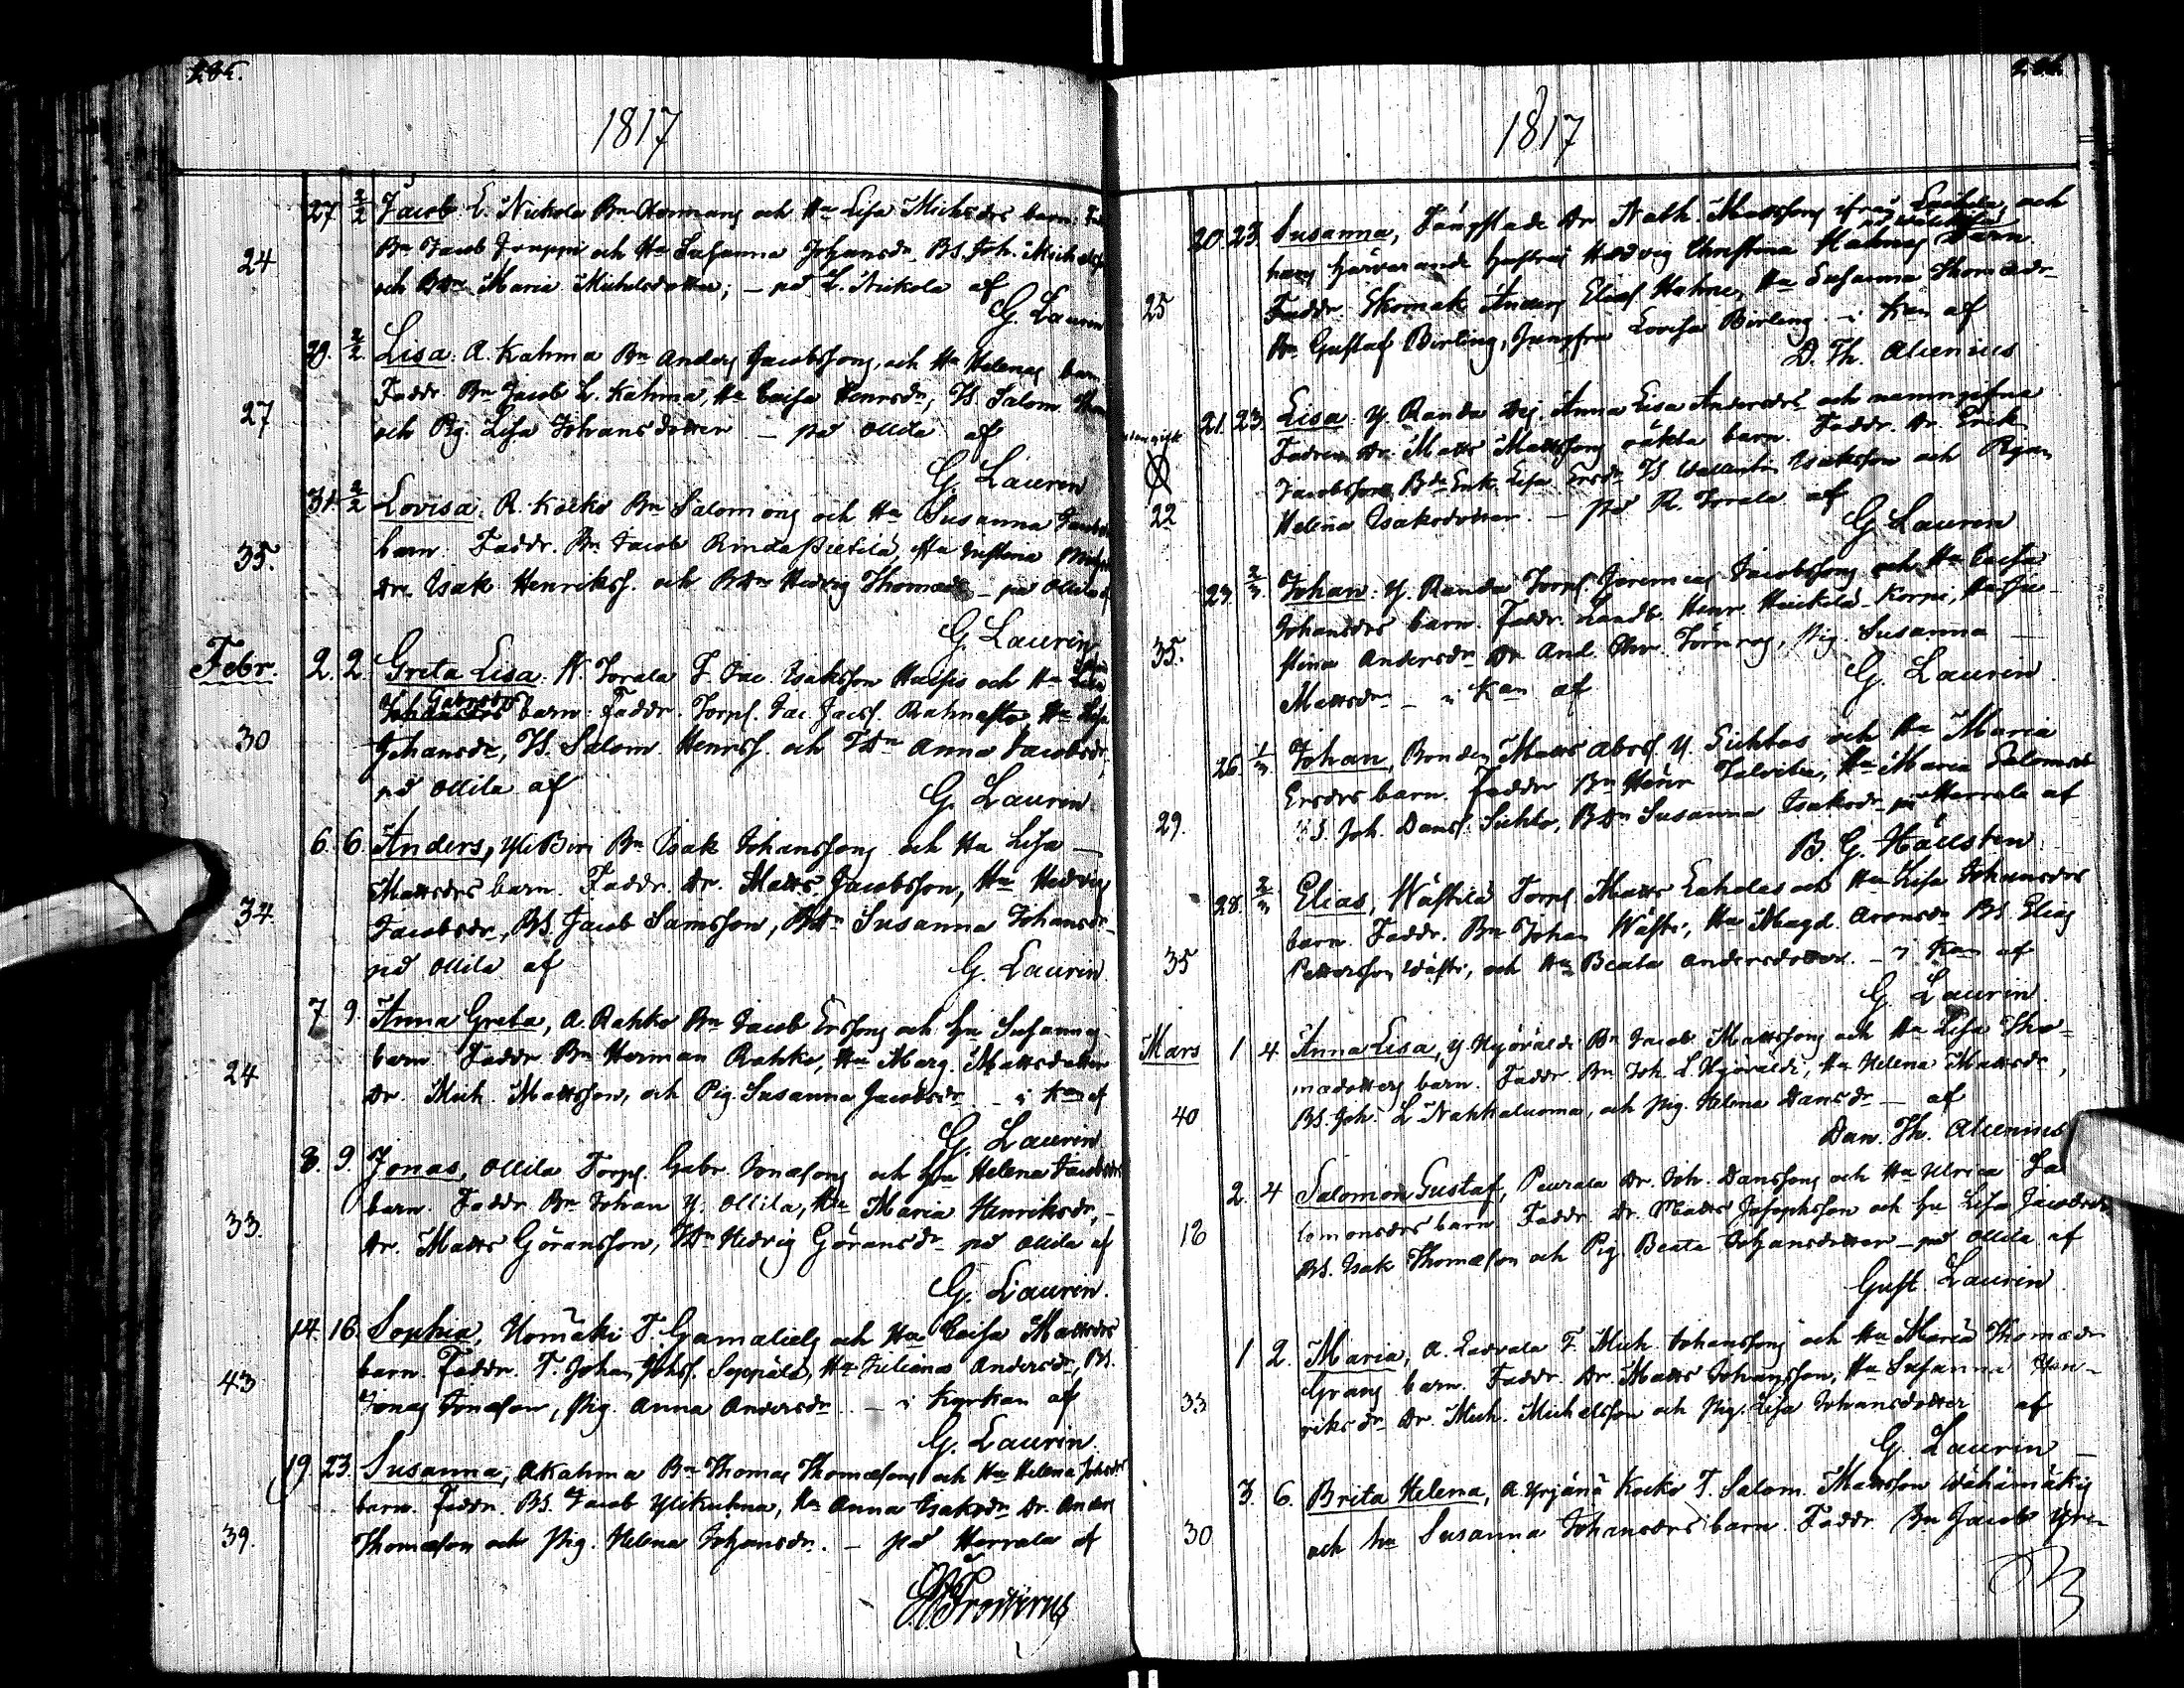 285.
1817
27 2/2 Jacob: L. Nickola Bn Hermans och Ha Lisa Michsdrs barn: Fad
24 Bn Jacob Fruppi och Ha Susanna Johansdr, BS. Joh. Michelss
och BDr Maria Michelsdotter; – på L. Nickola af
G. Laurin
29. 2/2 Lisa: A. Kahma Bn Anders Jacobssons, och Ha Helenas barn.
27 Faddr. Bn Jacob L. Kahma, Ha Caisa Henrsdr, TS. Salom.
och Pig. Lisa Johansdotter – på Ollila af
G. Laurin
31. 2/2 Lovisa: R. Kocko Bn Salomons och Ha Susanna
35. barn. Faddr. Bn Jacob Rinda Pietilä, Ha Justina
Dr. Isak Henrikss. och BDr Hedvig Thomædr – på Ollila af
G. Laurin
Febr. 2. 2. Greta Lisa: N. Torala T. Jac. Isaksson och Ha
Gabrsdrs
Johansdrs barn: Faddr. Torps. Jac. Jacss. Rahnasto, Ha Lisa
30 Johansdr, TS. Salom. Henrss. och TDr Anna Jacobsdr,
på Ollila af
G. Laurin
6. 6 Anders, Yli Biri Bn Isak Johanssons och Ha Lisa –
Mattsdrs barn. Faddr. Dr. Matts Jacobsson, Ha Hedvig
34. Jacobsdr, BS. Jacob Samsson, BDr Susanna Johansdr
på Ollila af
G. Laurin
7 9. Anna Greta, A. Rahko Bn Jacob Erssons och Hu Susannas
barn Faddr Bn Herman Rahko, Ha Marg. Mattsdotter
24 Dr. Mich. Mattsson, och Pig. Susanna Jacobsdr – i Kan af
G. Laurin
8. 9. Jonas, Ollila Torps. Gabr. Jonæsons och Hu Helena Jacobsdrs
barn. Faddr Bn Johan Y. Ollila, Ha Maria Henriksdr, –
33. Dr. Matts Göransson, TDr Hedvig Göransdr på Ollila af
G. Laurin.
14. 16. Sophia, Homäki T. Gamaliels och Ha Caisa Mattsdrs
43 barn. Faddr. T. Johan Johss. Seppälä, Ha Juliana Andersdr, BS.
Jonas Jonæson, Pig. Anna Andersdr – i Kyrkan af
G. Laurin.
19 23. Susanna, A Kahma Bn Thomas Thomæsons och Ha Helena Johsdrs
barn. Faddr. BS. Jacob Ylikuhna, Ha Anna Isaksdr Dr. Anders
39. Thomæson och Pig. Helena Johansdr. – på Harrala af
1817
20. 23 Susanna, Fångstade Dr Nath. Mattssons ifrån och
hans härvarande hustrus Hedvig Christina Hahnes Barn.
25 Faddr. Skomak Anders Elias Hahne, Ha Susanna Thomædr
Gustaf Birling, Jungfru Lovisa Birling – i Kan af
D. Th. Alcenius
21. 23. Lisa: Y. Randa Pig. Anna Lisa Andersdrs och namngifna
Fadren Dr. Matts Mattssons oäkta barn. Faddr. Dr. Erik
Jacobsson, Bda Enk. Lisa Ersdr TS Wallentin Isaksson och Pigan
22 Helena Isaksdotter – på R. Torala af
G Laurin
23. 2/3. Johan: Y. Randa Torps. Jeremias Jacobssons och Ha Caisa
Johansdrs barn. Faddr. Landb. Henr. Heickilä Korpi, Ha Ju-
35. stina Andersdr Dr. And. Törnroos, Pig. Susanna –
Mattsdr – i Kan af
G. Laurin
26. 1/3 Johan, Bonden Matts Abrss. Y. Sichtos och Ha Maria
Ersdrs barn. Faddr Bn Henr Talvitie, Ha Maria Salomsdr
29. BS Joh. Danss. Sichto, BDr Susanna Isaksdr på Harrala af
B. G. Hällsten
28. 2/3 Elias, Wästilä Torps. Matts Lahdes och Ha Lisa Johansdrs
barn. Faddr. Bn Johan Wästi, Ha Magd. Aronsdr BS. Elias
35 Pettersson Wästi, och Ha Beata Andersdotter – i Kan af
G. Laurin
Mars 1 4 Anna Lisa, Y. Njöräldi Bn Jacob Mattssons och Ha Lisa Tho-
mædotters barn. Faddr. Bn Joh. L Njöräldi, Ha Helena Mattsdr,
40 BS. Joh. L Nahkaluoma, och Pig. Helena Dansdr – af
Dan. Th. Alcenius
2. 4 Salomon Gustaf, Peurala Dr. Joh. Danssons och Ha Ulrica Sa
lomonsdrs barn. Faddr. Dr. Matts Josephsson och Hu Lisa Jacobsdr
18 BS. Isak Thomæson och Pig. Beata Johansdotter – på Ollila af
Gust. Laurin
1 2. Maria, A. T. Mich. Johanssons och Ha Maria Thomædr
Grans barn. Faddr. Dr. Matts Johansson, Ha Susanna Hen-
33 riksdr Dr. Mich. Michelsson och Pig. Lisa Johansdotter af
G. Laurin –
3. 6. Brita Helena, A. Yrjänä Kocko T. Salom. Mattsson Wähämäkis
30 och Ha Susanna Johansdrs barn. Faddr. Bn Jacob